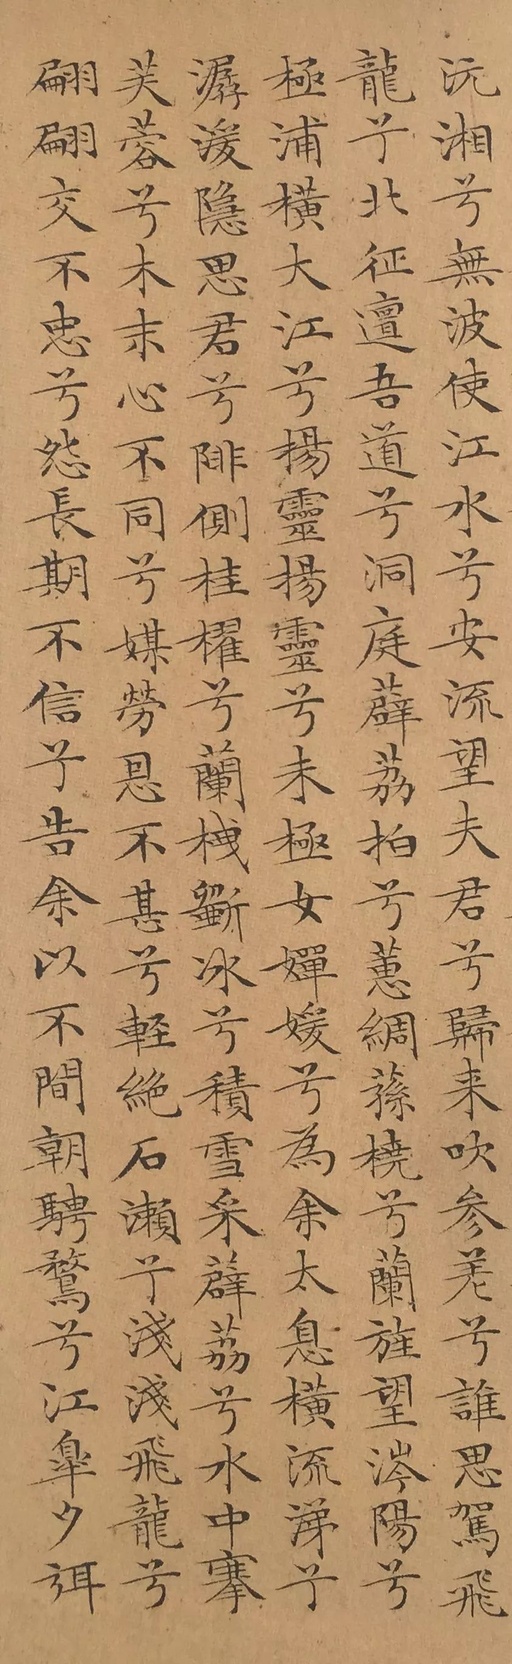 沅湘兮無波使江水兮安流望夫君兮歸来吹参差兮誰思駕飛
龍兮北征邅吾道兮洞庭薜荔拍兮蕙綢蓀橈兮蘭旌望涔陽兮
極浦橫大江兮揚靈揚靈兮未極女嬋媛兮為余太息橫流涕兮
潺湲隱思君兮陫側桂櫂兮蘭栧斵冰兮積雪采薜荔兮水中搴
芙蓉兮木末心不同兮媒勞恩不甚兮輕絕石瀨兮淺淺飛龍兮
翩翩交不忠兮怨長期不信兮告余以不閒朝騁騖兮江皋夕弭